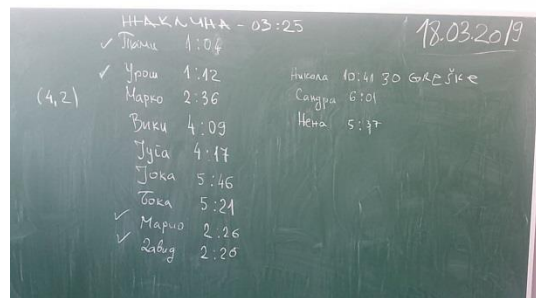 ЖАКЛИНА - 03:25
18.03.2019
✓ Тами 1:04
✓ Урош 1:12
(4,2)
Марко 2:36
Вики 4:09
Југа 4:17
Јока 5:46
Бока 5:21
✓ Марио 2:26
✓ Давид 2:20
Никола 10:41 30 GREŠKE
Сандра 6:01
Нена 5:37